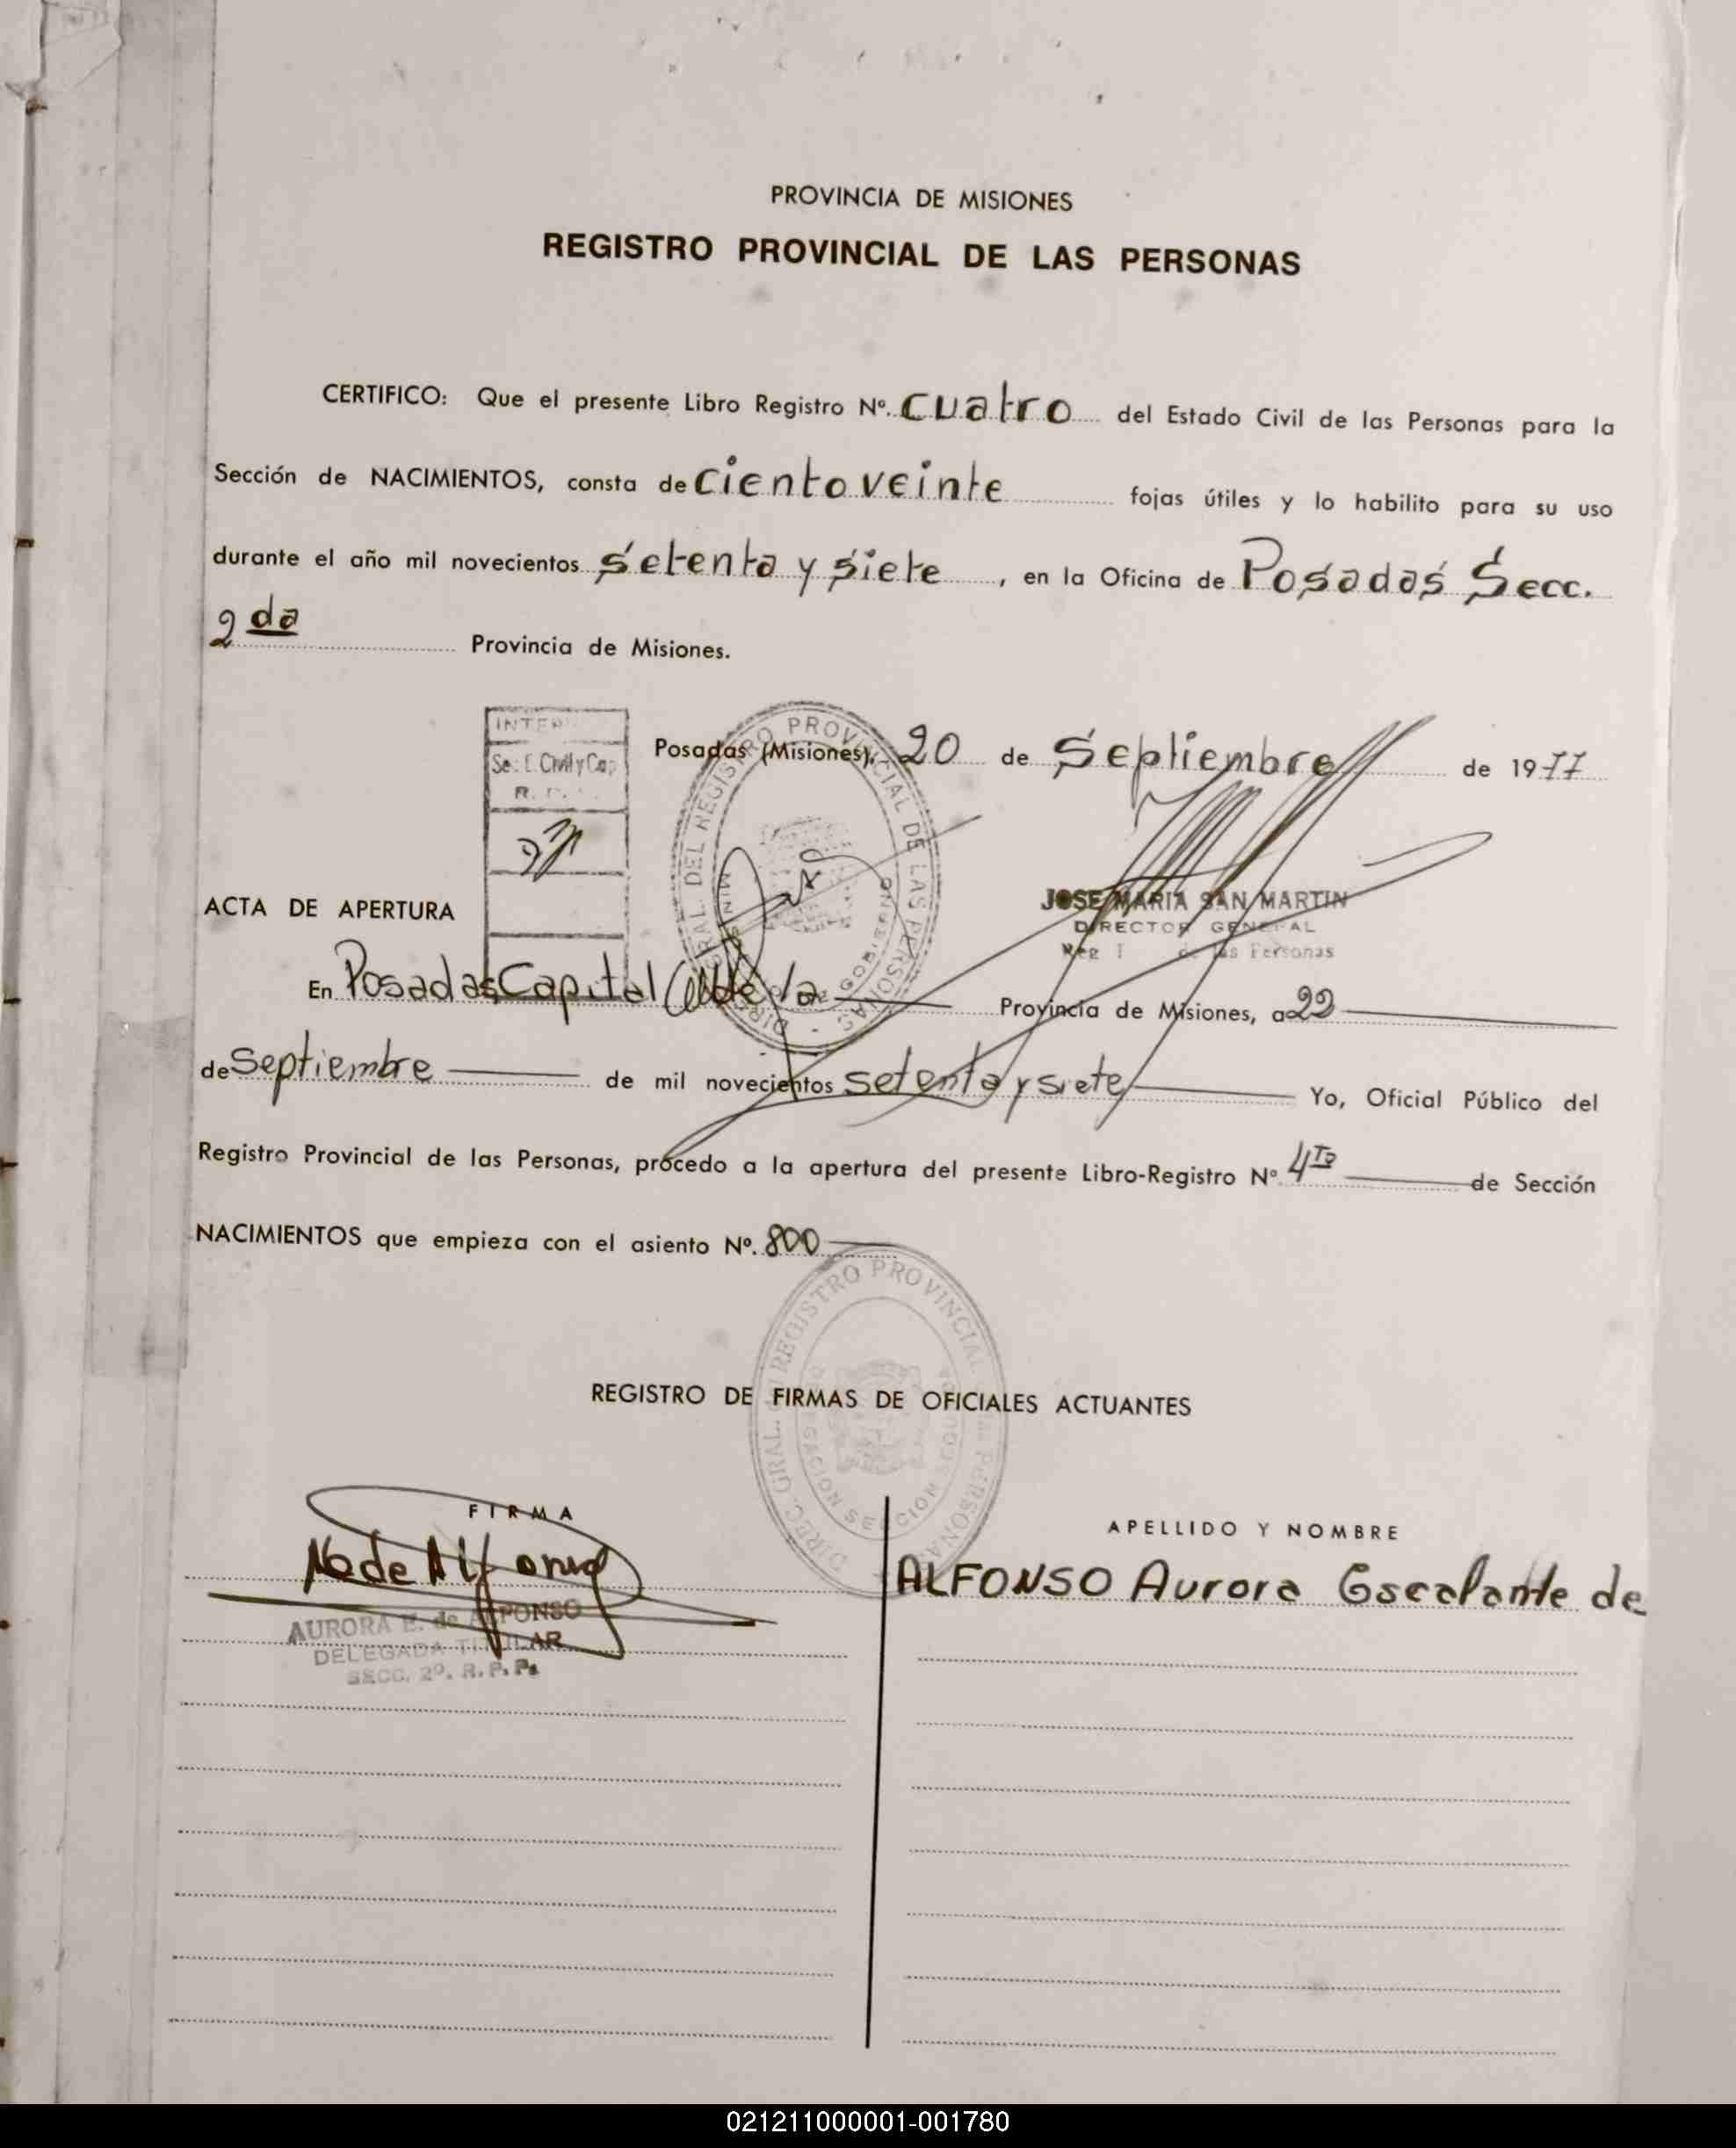 PROVINCIA DE MISIONES
REGISTRO PROVINCIAL DE LAS PERSONAS
CERTIFICO: Que el presente Libro Registro Nº. Cuatro del Estado Civil de las Personas para la
Sección de NACIMIENTOS, consta de Ciento veinte fojas útiles y lo habilito para su uso
durante el año mil novecientos setenta y siete, en la Oficina de Posadas Secc.
2da Provincia de Misiones.
Posadas (Misiones), 20 de Septiembre de 1977
Civil y Cap
DIREC. GRAL. DEL REGISTRO PROVINCIAL DE LAS PERSONAS
JOSE MARIA SAN MARTIN
DIRECTOR GENERAL
de las Personas
ACTA DE APERTURA
En Posadas Capital de la Provincia de Misiones, a 22
de Septiembre de mil novecientos setenta y siete Yo, Oficial Público del
Registro Provincial de las Personas, procedo a la apertura del presente Libro-Registro Nº 4to de Sección
NACIMIENTOS que empieza con el asiento Nº. 800
DIREC. GRAL. REGISTRO PROVINCIAL PERSONAS
REGISTRO DE FIRMAS DE OFICIALES ACTUANTES
FIRMA
AURORA E. de ALFONSO
DELEGADA TITULAR
SECC. 2º. R. P. P.
APELLIDO Y NOMBRE
ALFONSO Aurora Escalante de
021211000001-001780